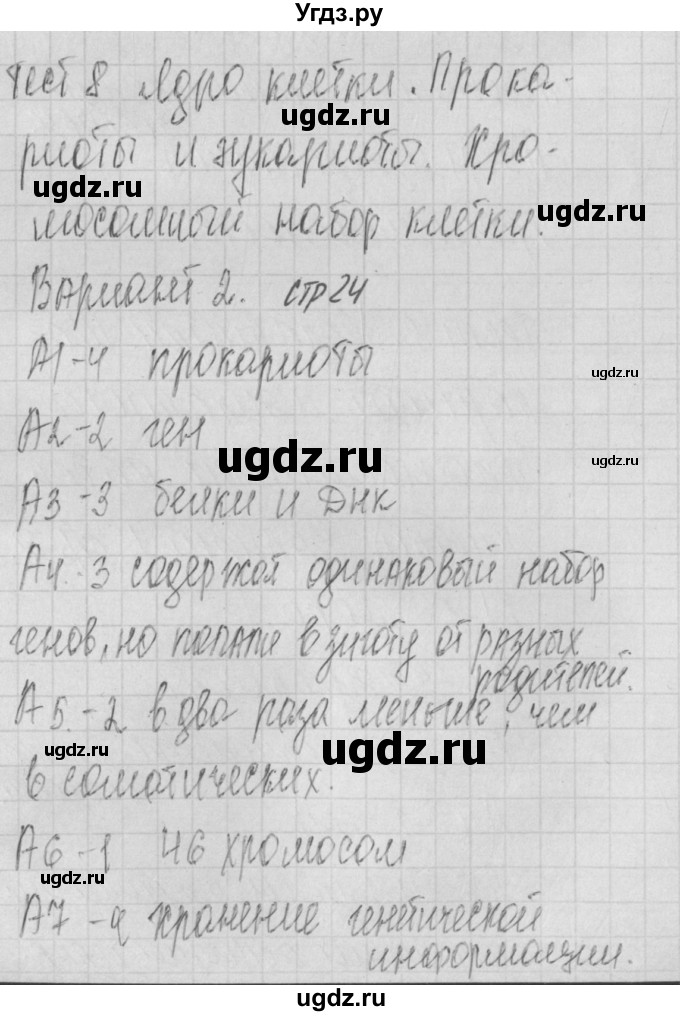 Угдз.ру
Тест 8 Ядро клетки. Прока-
ugdz.ru
риоты и эукариоты. Хро-
ugdz.ru
мосомный набор клетки.
ugdz.ru
Вариант 2. стр 24
А1-4 прокариоты
ugdz.ru
А2-2 ген
ugdz.ru
ugdz.ru
А3-3 белки и ДНК
ugdz.ru
А4-3 содержат одинаковый набор
генов, но попали в зиготу от разных
родителей.
А5.-2 в два раза меньше, чем
ugdz.ru
ugdz.ru
в соматических.
А6-1 46 хромосом
ugdz.ru
А7- хранение генетической
ugdz.ru
информации.
ugdz.ru